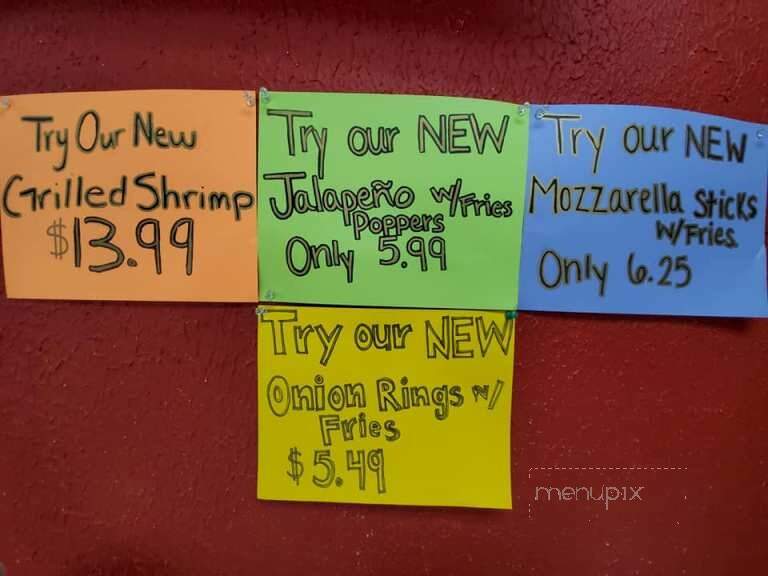 Try Our New
Grilled Shrimp
$13.99
Try our NEW
Jalapeño w/Fries
Poppers
Only 5.99
Try our NEW
Mozzarella Sticks
w/Fries.
Only 6.25
Try our NEW
Onion Rings w/
Fries
$5.49
menupix